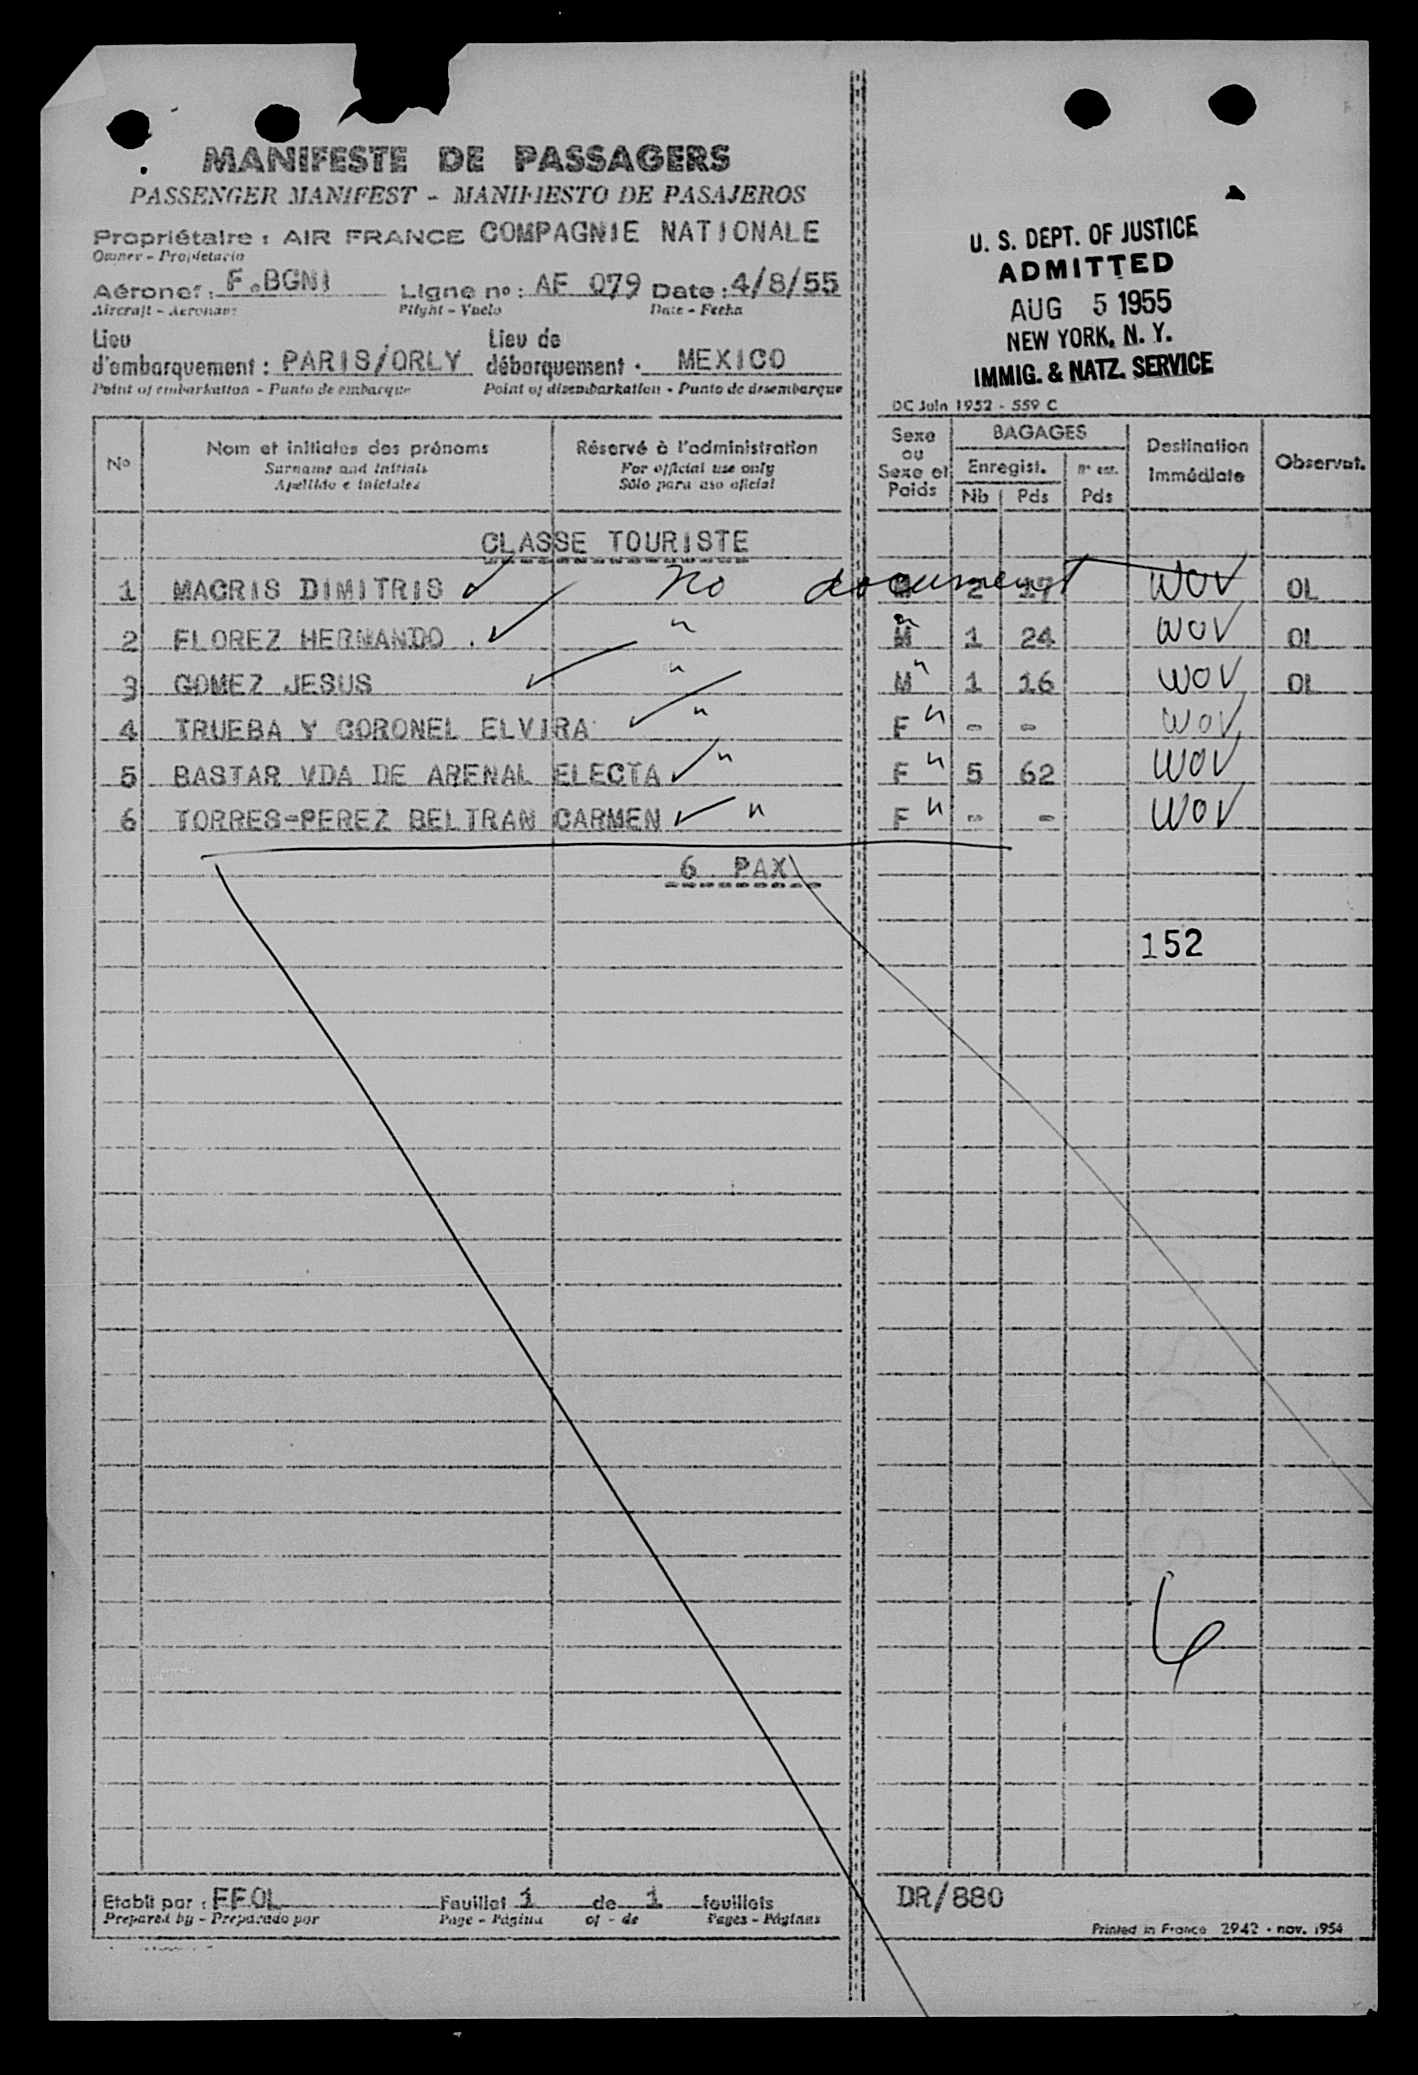 MANIFESTE DE PASSAGERS
PASSENGER MANIFEST - MANIFIESTO DE PASAJEROS
Propriétaire : AIR FRANCE COMPAGNIE NATIONALE
Owner - Propietario
Aéronef : F.BGNI Ligne no : AF 079 Date : 4/8/55
Aircraft - Aeronave Flight - Vuelo Date - Fecha
Lieu d'embarquement : PARIS/ORLY Lieu de débarquement : MEXICO
Point of embarkation - Punto de embarque Point of disembarkation - Punto de desembarque
U. S. DEPT. OF JUSTICE
ADMITTED
AUG 5 1955
NEW YORK, N. Y.
IMMIG. & NATZ. SERVICE
DC Juin 1952 - 559 C
No Nom et initiales des prénoms Réservé à l'administration Sexe ou Sexe et Poids BAGAGES Destination Immédiate Observat.
Surname and initials For official use only Enregist. Nb Pds Pds
Apellido e iniciales Sólo para uso oficial
CLASSE TOURISTE
1 MACRIS DIMITRIS No document 2 17 WOV OL
2 FLOREZ HERNANDO . " M " 1 24 WOV OL
3 GOMEZ JESUS " M " 1 16 WOV OL
4 TRUEBA Y CORONEL ELVIRA " F " - - WOV
5 BASTAR VDA DE ARENAL ELECTA " F " 5 62 WOV
6 TORRES-PEREZ BELTRAN CARMEN " F " - - WOV
6 PAX
152
6
Etabli par : FFOL Feuillet 1 de 1 feuillets DR/880
Prepared by - Preparado por Page - Página of - de Pages - Páginas
Printed in France 2942 - nov. 1954